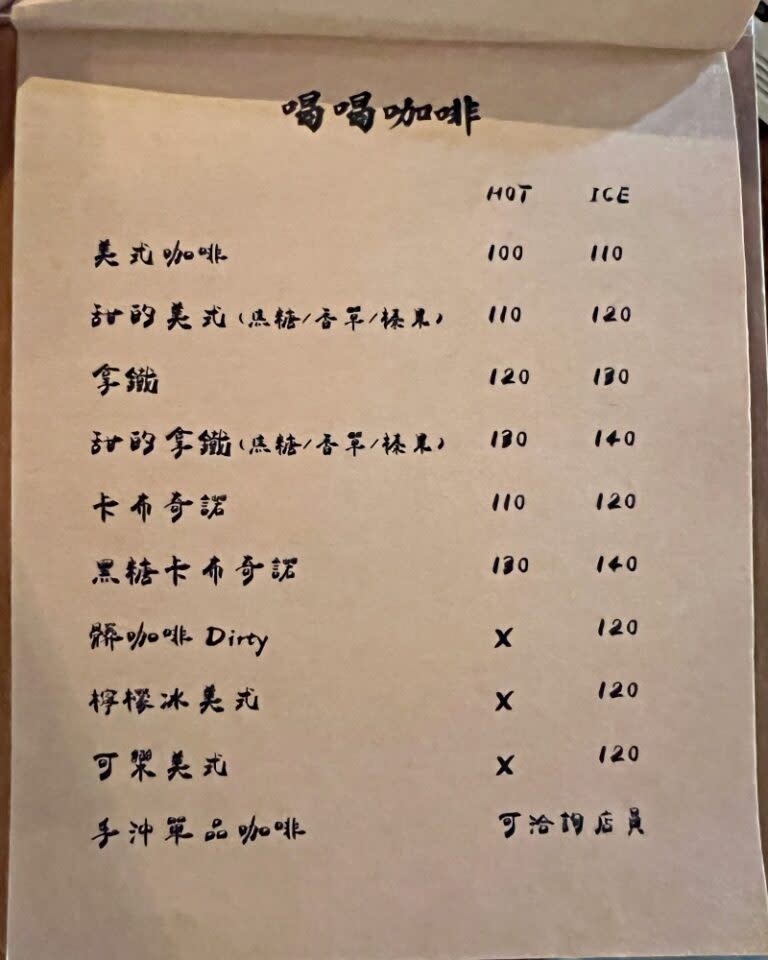 喝喝咖啡
HOT ICE
美式咖啡 100 110
甜的美式(焦糖/香草/榛果) 110 120
拿鐵 120 130
甜的拿鐵(焦糖/香草/榛果) 130 140
卡布奇諾 110 120
黑糖卡布奇諾 130 140
髒咖啡 Dirty X 120
檸檬冰美式 X 120
可樂美式 X 120
手沖單品咖啡 可洽詢店員